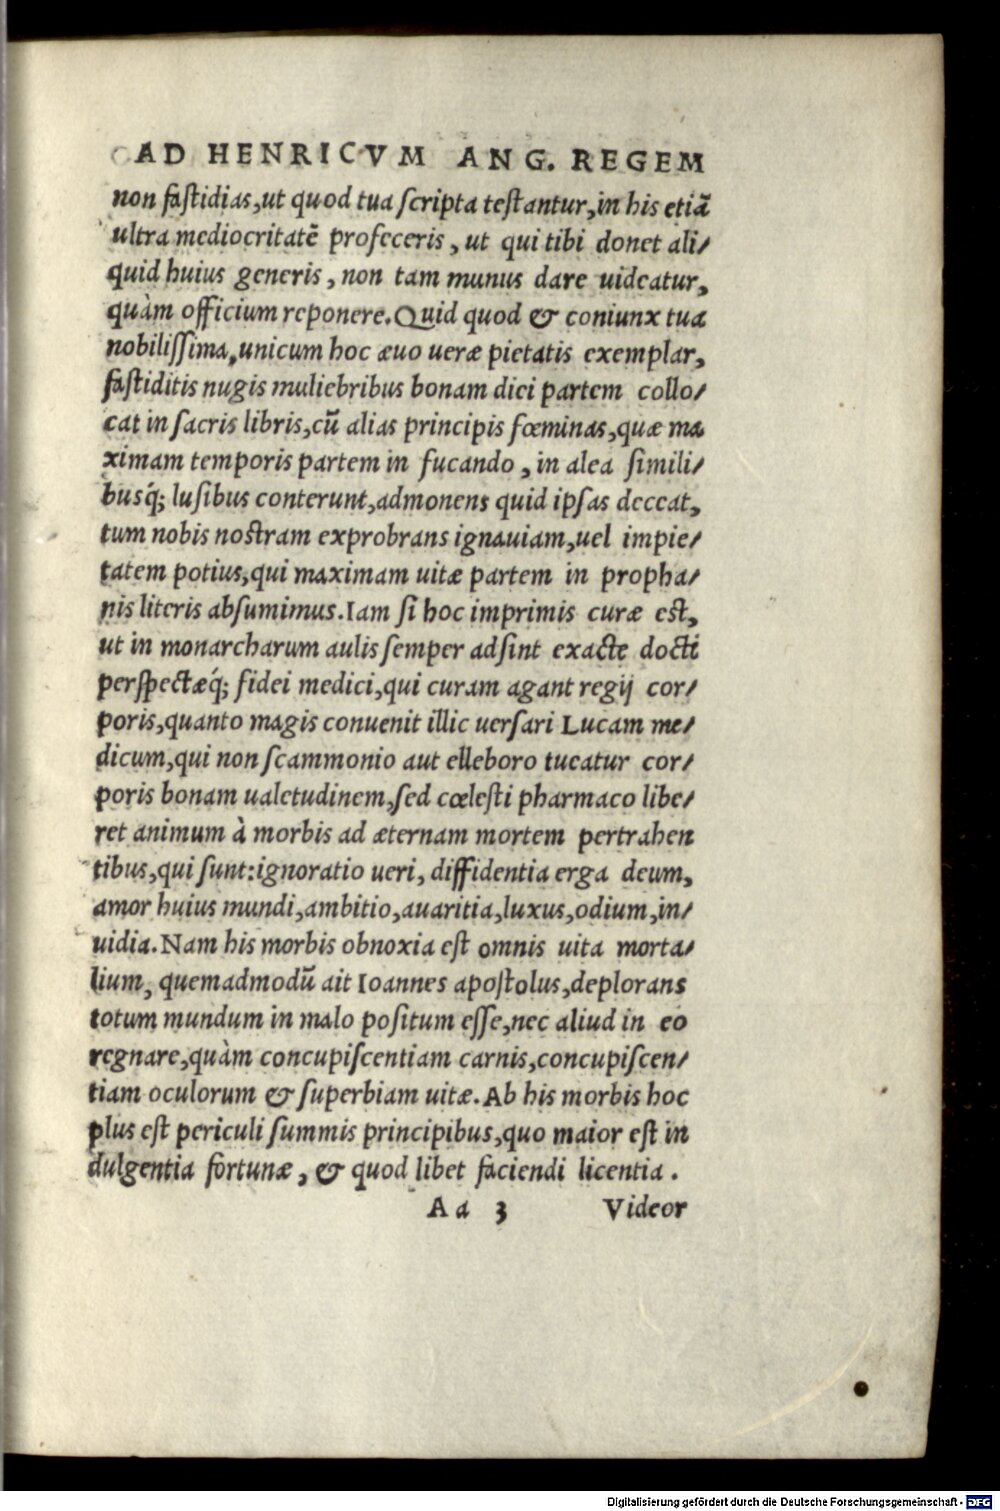 AD HENRICVM ANG. REGEM
non fastidias, ut quod tua scripta testantur, in his etiã
ultra mediocritatẽ profeceris, ut qui tibi donet ali/
quid huius generis, non tam munus dare uideatur,
quàm officium reponere. Quid quod & coniunx tua
nobilissima, unicum hoc æuo ueræ pietatis exemplar,
fastiditis nugis muliebribus bonam diei partem collo/
cat in sacris libris, cũ alias principis fœminas, quæ ma
ximam temporis partem in fucando, in alea simili/
busq́; lusibus conterunt, admonens quid ipsas deceat,
tum nobis nostram exprobrans ignauiam, uel impie/
tatem potius, qui maximam uitæ partem in propha/
nis literis absumimus. Iam si hoc imprimis curæ est,
ut in monarcharum aulis semper adsint exacte docti
perspectæq́; fidei medici, qui curam agant regij cor/
poris, quanto magis conuenit illic uersari Lucam me/
dicum, qui non scammonio aut elleboro tueatur cor/
poris bonam ualetudinem, sed cœlesti pharmaco libe/
ret animum à morbis ad æternam mortem pertrahen
tibus, qui sunt: ignoratio ueri, diffidentia erga deum,
amor huius mundi, ambitio, auaritia, luxus, odium, in/
uidia. Nam his morbis obnoxia est omnis uita morta/
lium, quemadmodũ ait Ioannes apostolus, deplorans
totum mundum in malo positum esse, nec aliud in eo
regnare, quàm concupiscentiam carnis, concupiscen/
tiam oculorum & superbiam uitæ. Ab his morbis hoc
plus est periculi summis principibus, quo maior est in
dulgentia fortunæ, & quod libet faciendi licentia.
Aa 3 Videor
Digitalisierung gefördert durch die Deutsche Forschungsgemeinschaft - DFG